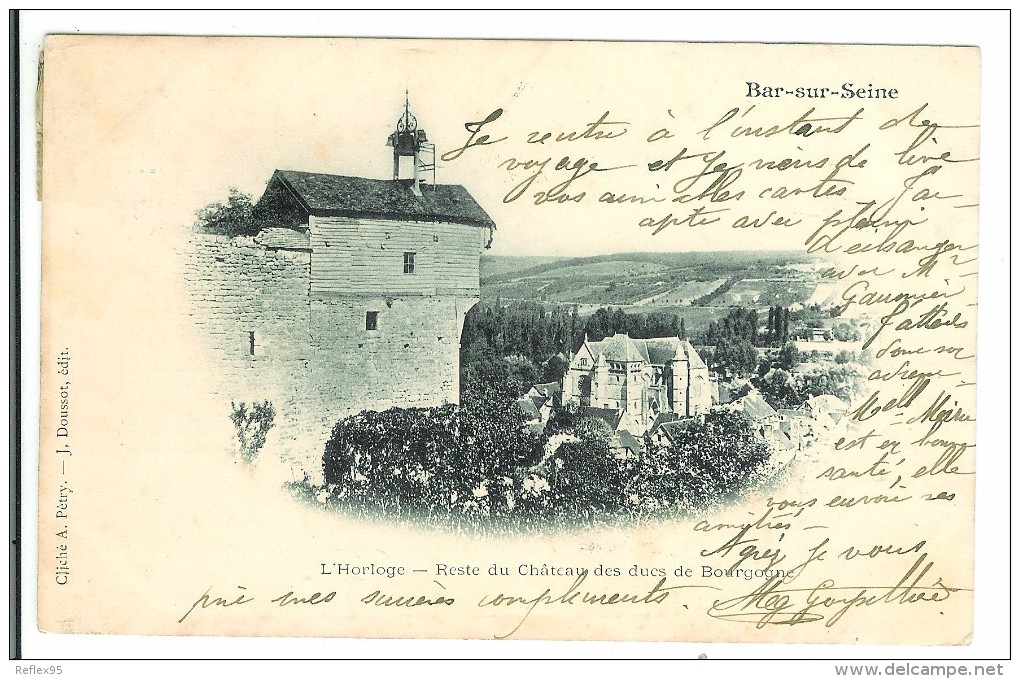 Bar-sur-Seine
Je rentre à l'instant de
voyage et Je viens de lire
vos aimables cartes J'ai
apte avec plaisir
d'echanger
avec M
Gaumier
J'attends
donc son
adresse
Melle Marie
est en bonne
santé, elle
vous envoie ses
amitiés —
Agréez Je vous
prie mes sincères compliments.
L'Horloge — Reste du Château des ducs de Bourgogne
Cliché A. Pétry. — J. Doussot, édit.
Reflex95
www.delcampe.net